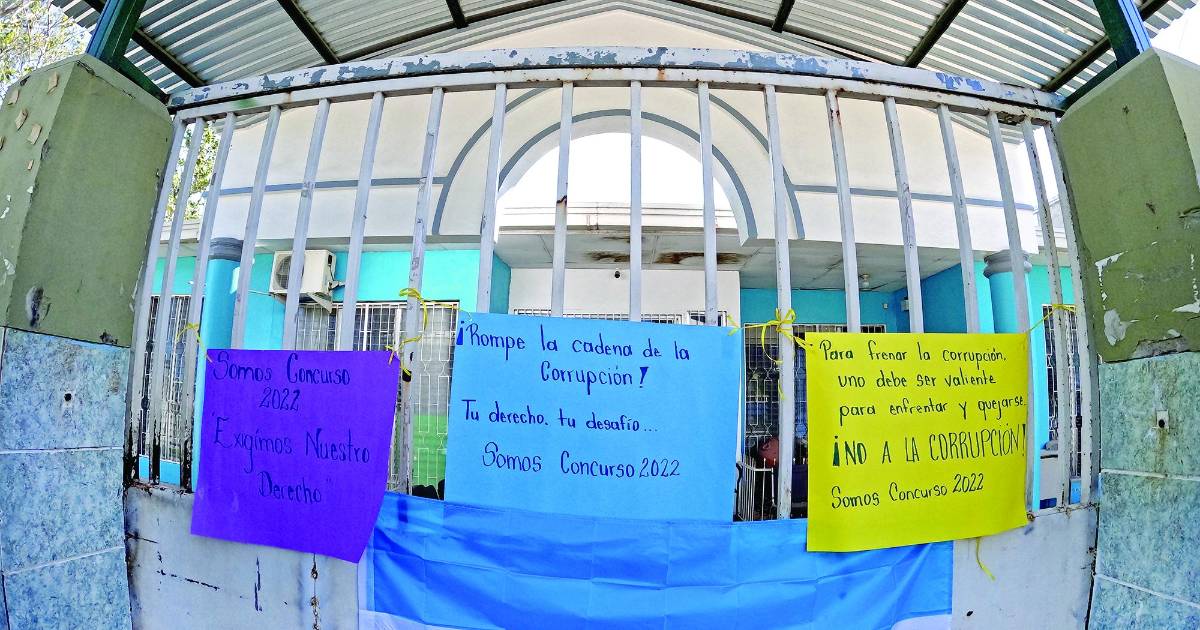 Somos Concurso
2022
"Exigimos Nuestro
Derecho"
¡Rompe la cadena de la
Corrupción!
Tu derecho, tu desafío...
Somos Concurso 2022
Para frenar la corrupción,
uno debe ser valiente
para enfrentar y quejarse.
¡NO A LA CORRUPCIÓN!
Somos Concurso 2022